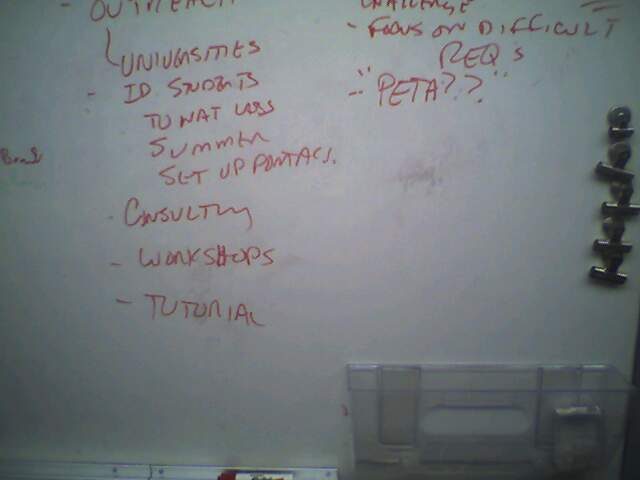 - OUTREACH
UNIVERSITIES
- ID STUDENTS
TO NAT LABS
SUMMER
SET UP
- CONSULTING
- WORKSHOPS
- TUTORIAL
CHALLENGE
- FOCUS ON DIFFICULT
REQS
- "PETA??"